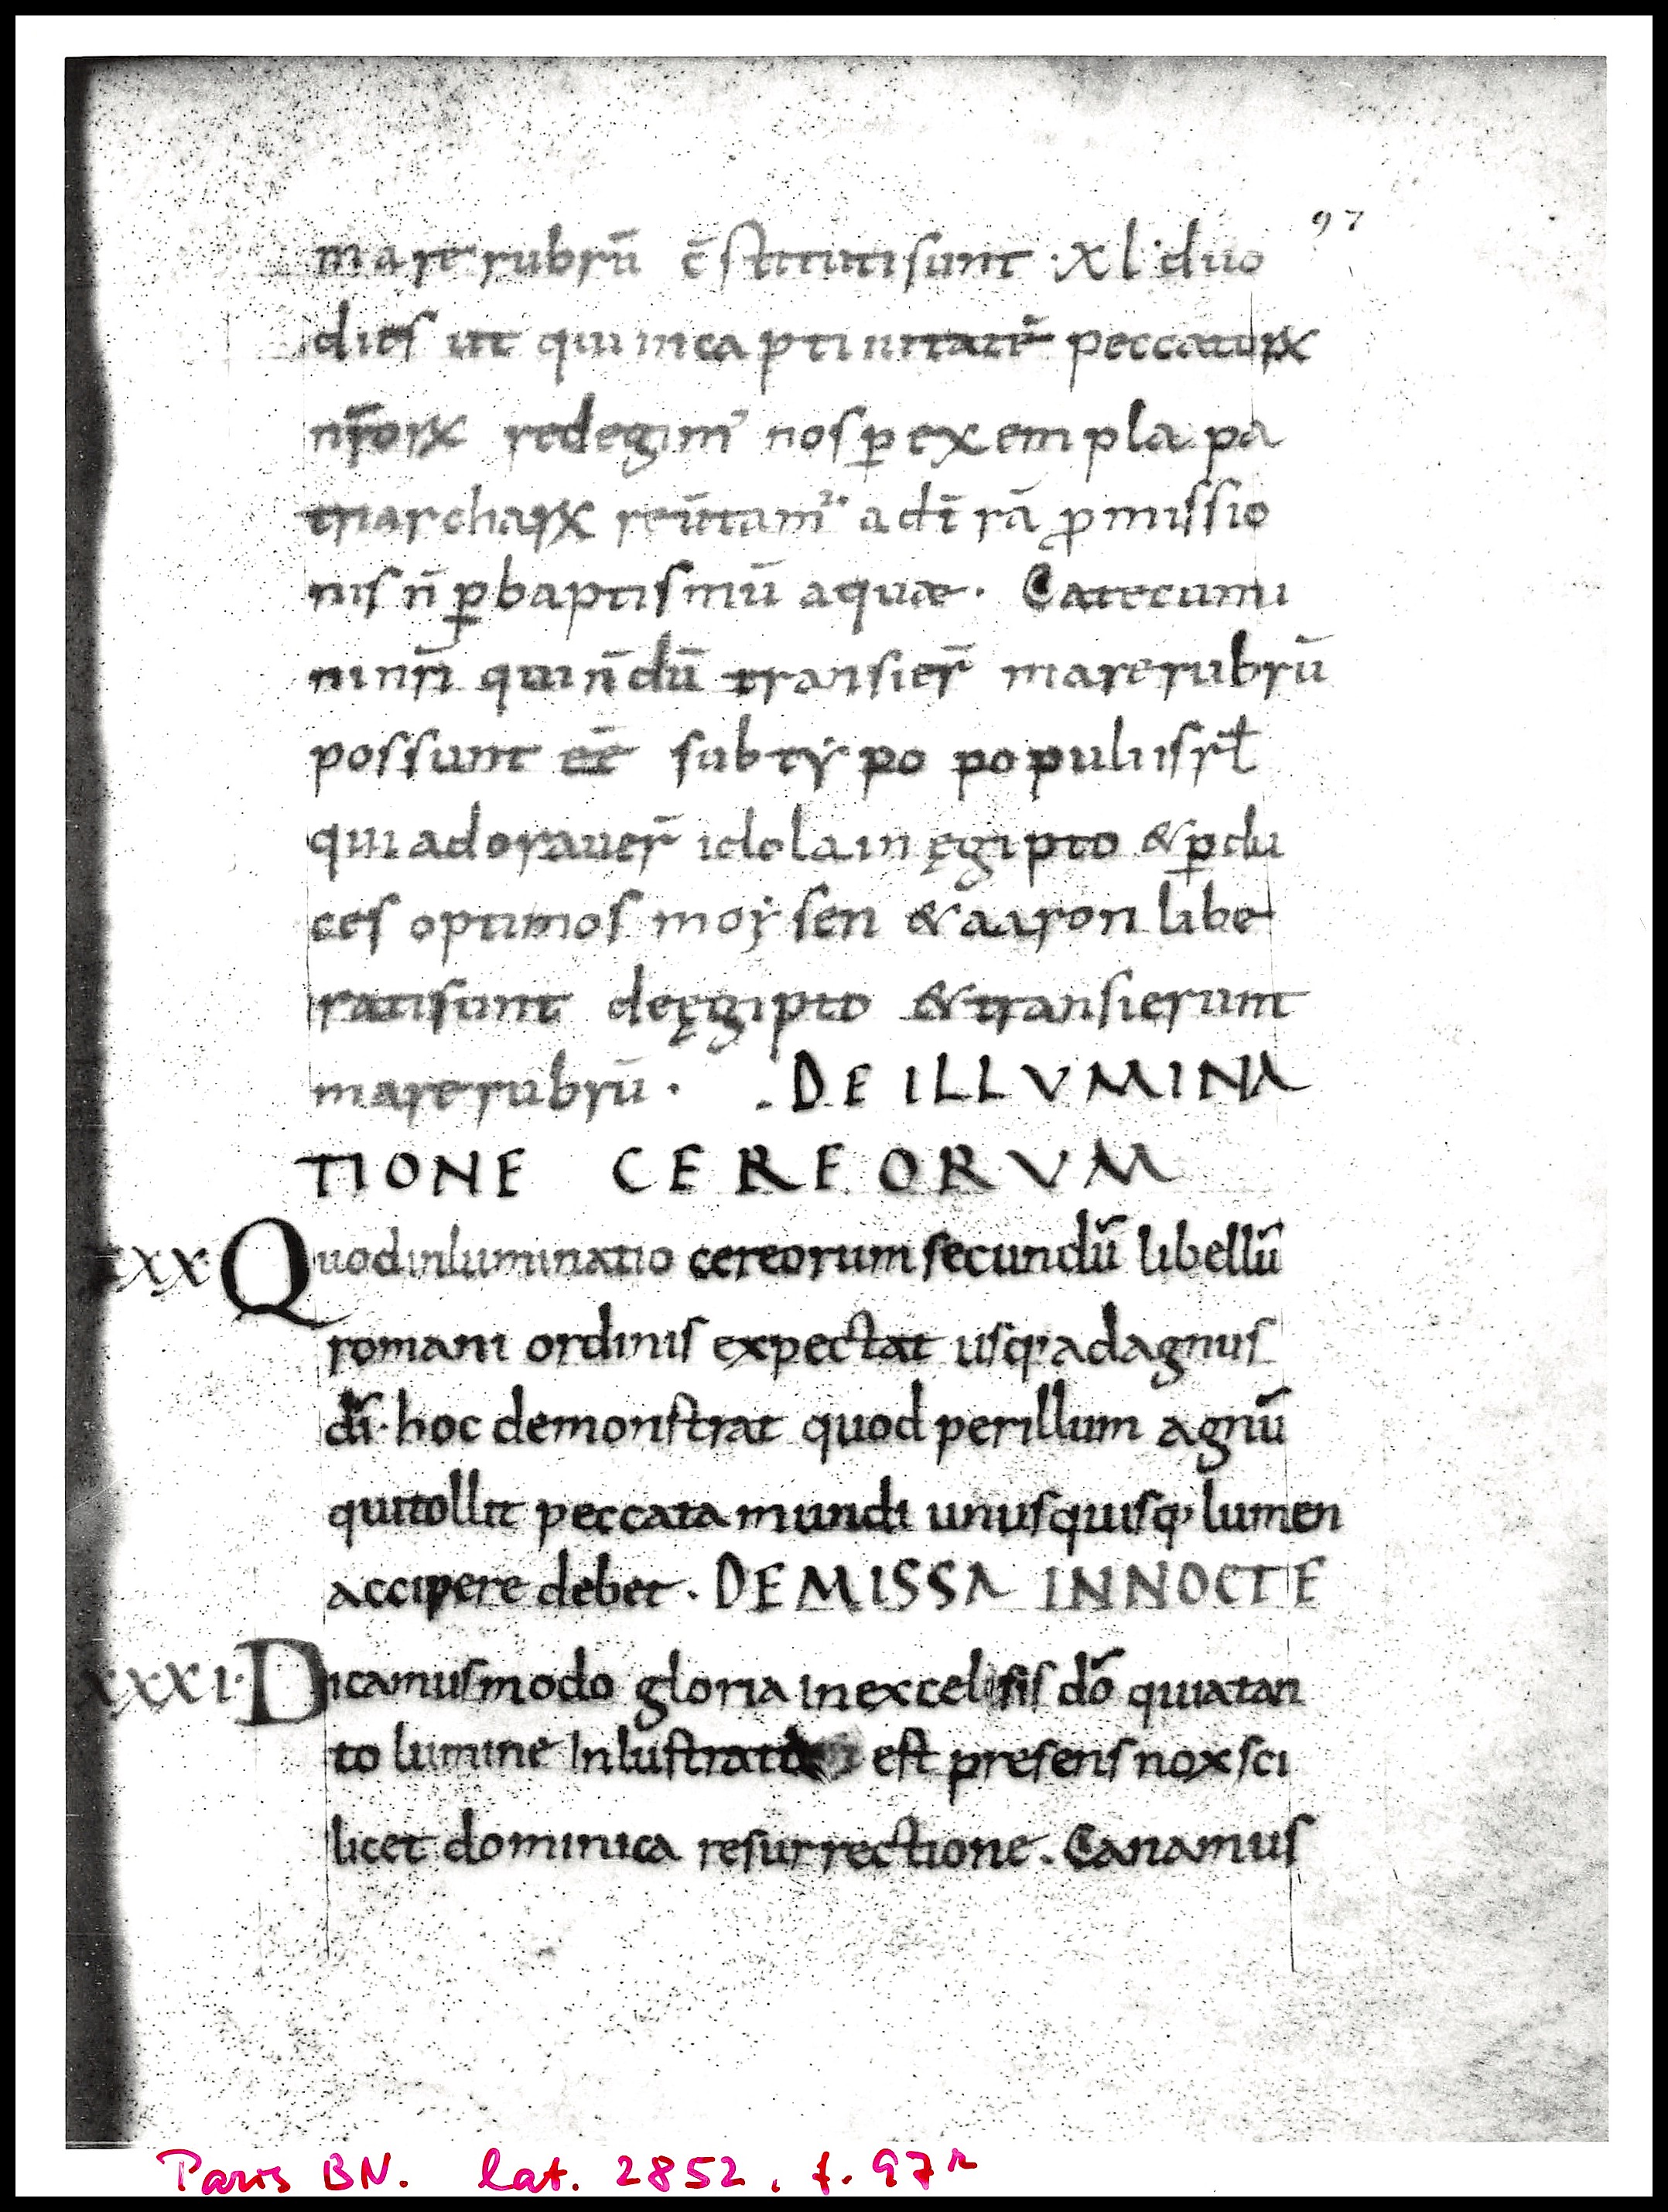 97
mare rubrū c̄stituti sunt · xl · duo
dies ut qui in captiuitatē peccatoꝝ
nr̄orꝝ redegim᾽ nos ꝑ exempla pa
triarcharꝝ reūtam᾽ ad t̄rā ꝓmissio
nis n̄ ꝑ baptismū aquae · Catecumi
ni nr̄i qui n̄dū transier̄ mare rubrū
possunt ēē sub tẏpo populi isrł
qui adorauer̄ idola in ęgipto & ꝑ du
ces optimos moẏsen & aaron libe
rati sunt de ęgipto & transierunt
mare rubrū · . DE ILLVMINA
TIONE CEREORVM
XXX · Quod inluminatio cereorum secundū libellū
romani ordinis expectat usq; ad agnus
dī · hoc demonstrat quod per illum agnū
qui tollit peccata mundi unusquisq; lumen
accipere debet . DE MISSA IN NOCTE
XXXI · Dicamus modo gloria in excelsis dō quia tan
to lumine Inlustrata est presens nox sci
licet dominica resurrectione . Canamus
Paris BN. lat. 2852, f. 97r